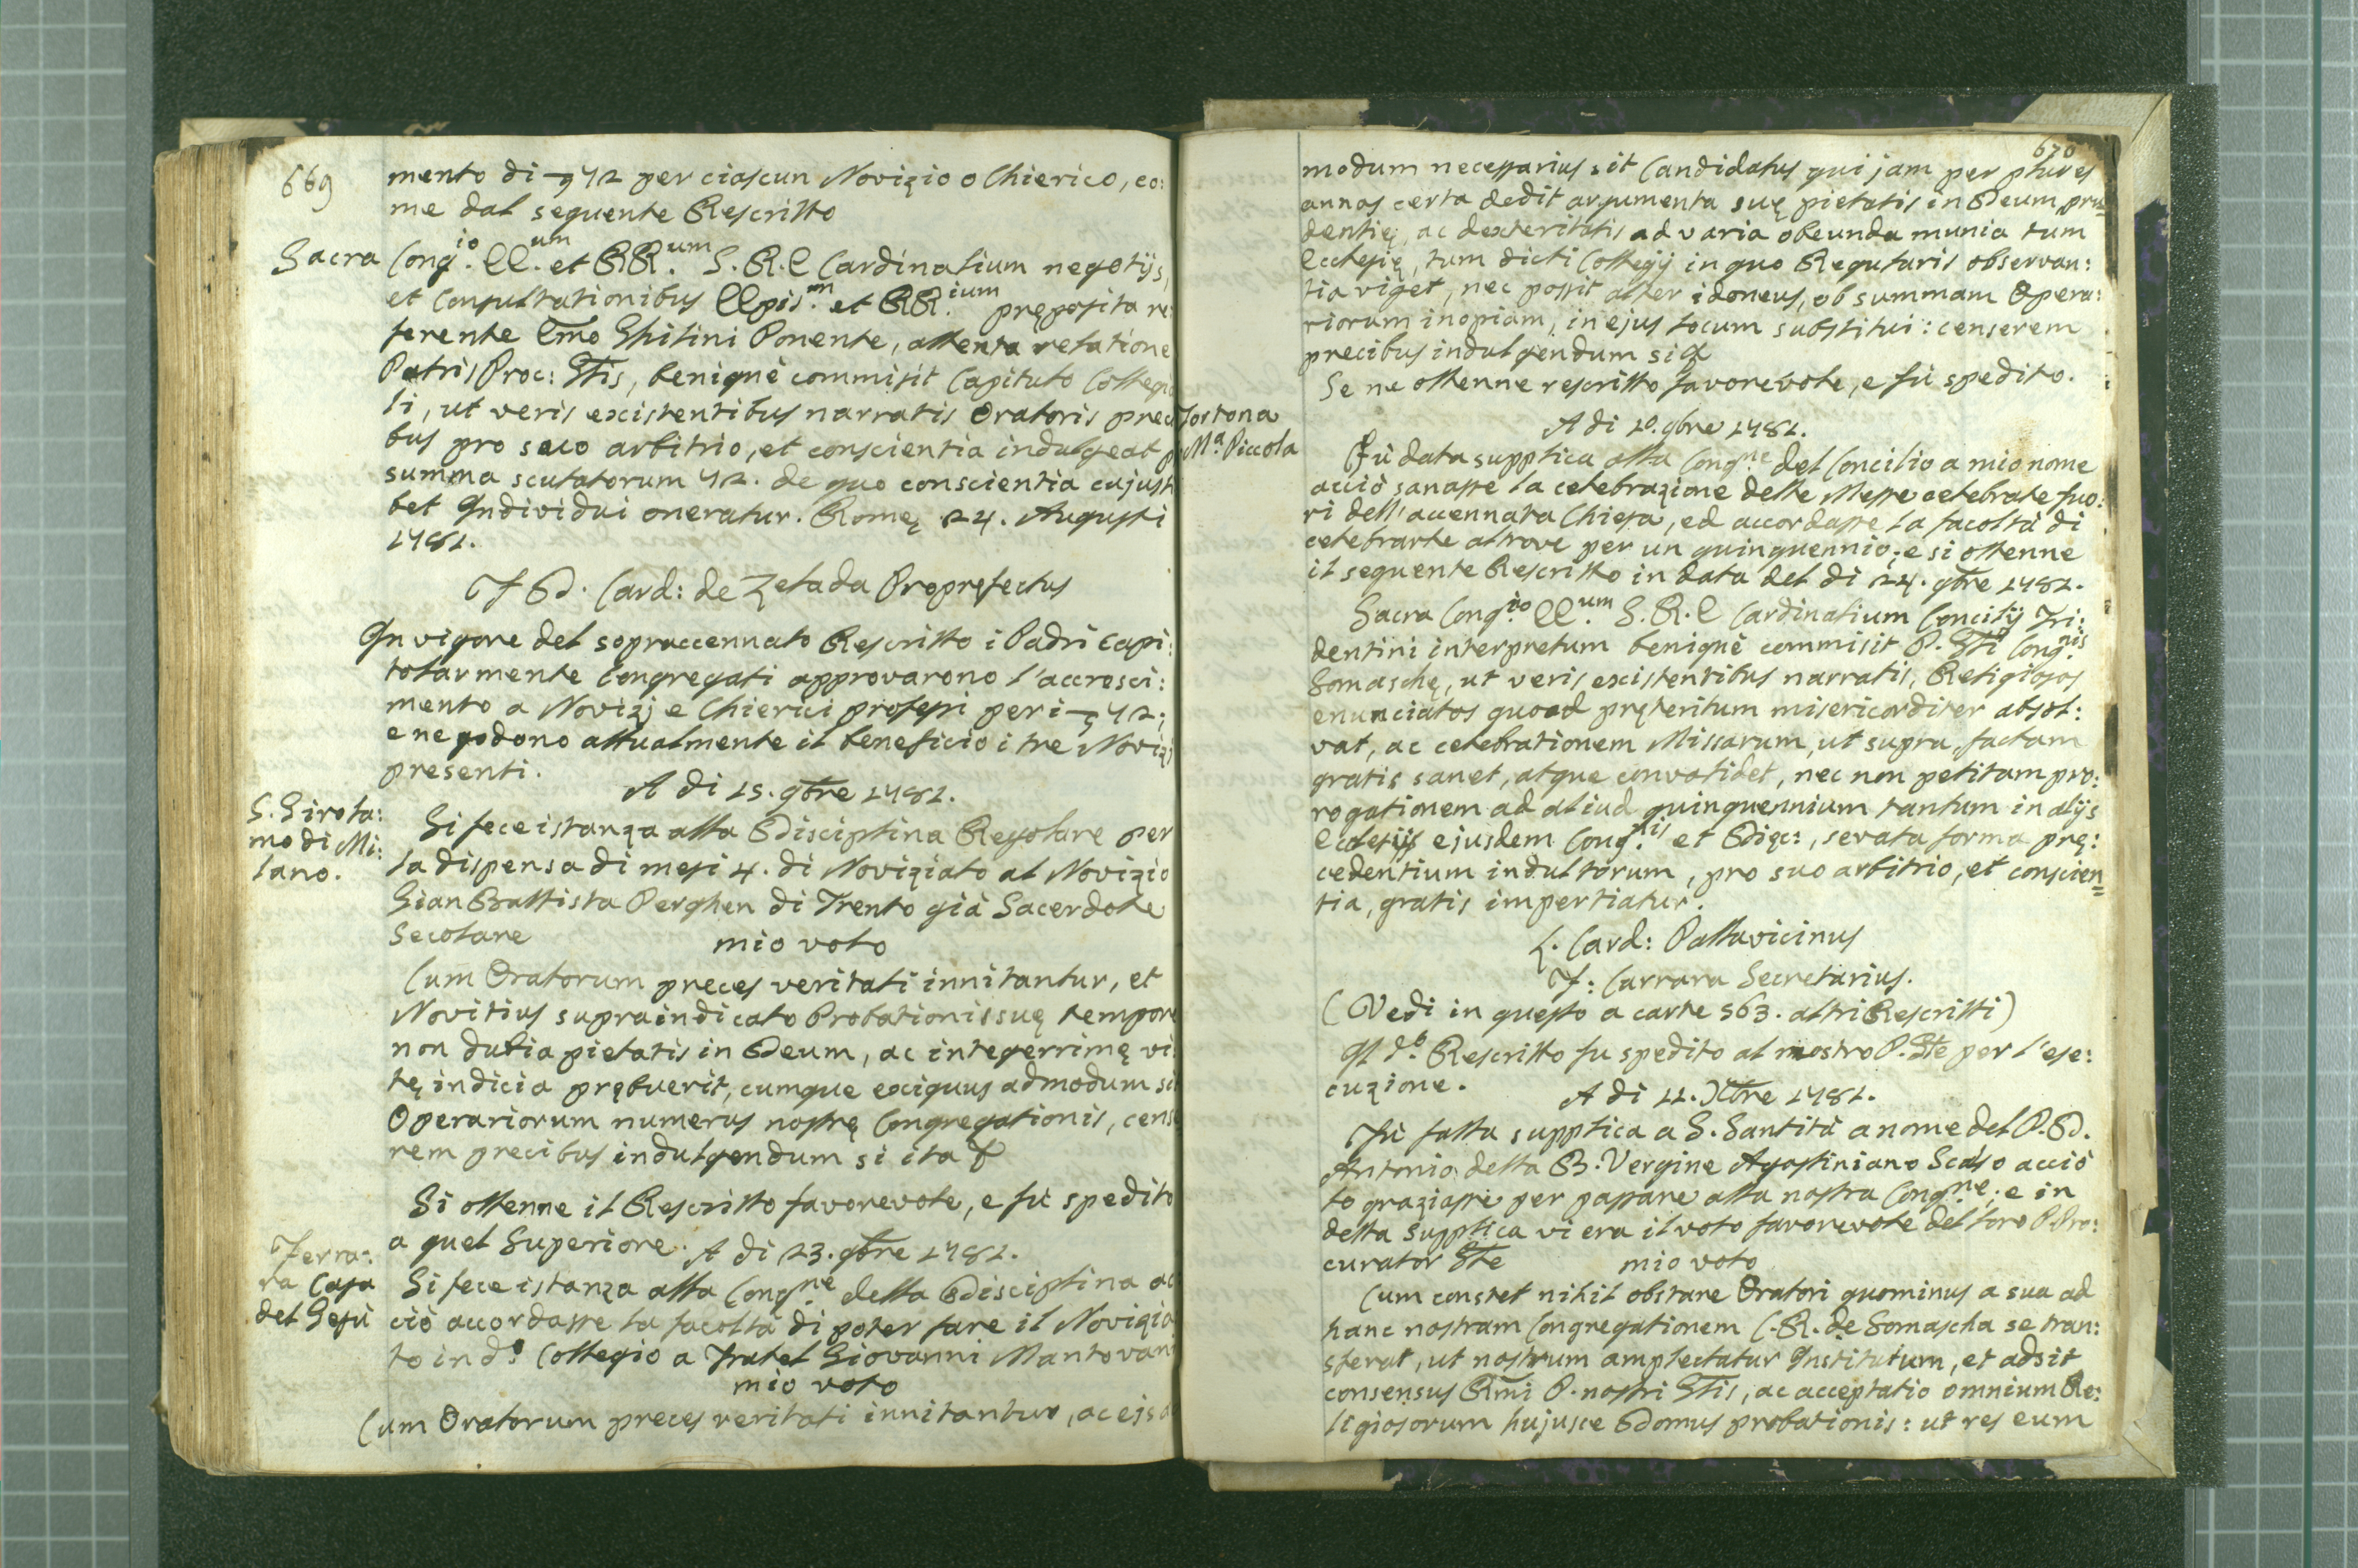 669
mento di 72 per ciascun Novizio o Chierico, co:
me dal seguente Rescritto
Sacra Cong.io EE.um et RR.um S. R. E Cardinalium negotijs,
et Consultationibus EEpis.m et RR.ium pręposita re
ferente Emo Ghilini Ponente, attenta relatione
Patris Proc: Gtis, benignè commisit Capitulo Collegi
li, ut veris existentibus narratis Oratoris preci
bus pro suo arbitrio, et conscientia indulgeat p
summa scutatorum 72. de quo conscientia cujusli
bet Individui oneratur. Romę 24. Augusti
1781.
F D. Card: de Zelada Proprefectus
In vigore del sopraccennato Rescritto i Padri capi:
tolarmente Congregati approvarono l'accresci:
mento a Novizj e Chierici professi per i 72;
e ne godono attualmente il beneficio i tre Novizj
presenti.
A di 15. gbre 1781.
S. Girola:
mo di Mi:
lano.
Si fece istanza alla Disciplina Regolare per
la dispensa di mesi 4. di Noviziato al Novizio
Gian Battista Perghen di Trento già Sacerdote
Secolare mio voto
Cum Oratorum preces veritati innitantur, et
Novitius supraindicato Probationis suę tempore
non dubia pietatis in Deum, ac integerrimę vi
tę indicia prębuerit, cumque exiguus admodum si
Operariorum numerus nostrę Congregationis, cens
rem precibus indulgendum si ita
Si ottenne il Rescritto favorevole, e fù spedito
a quel Superiore. A di 23. gbre 1781.
Ferra:
ra Casa
del Gesù
Si fece istanza alla Cong.ne della Disciplina ac
ciò accordasse la facoltà di poter fare il Novizia
to in d.o Collegio a Fratel Giovanni Mantovani
mio voto
Cum Oratorum preces veritati innitantur, ac eis a
670
modum necessarius sit Candidatus qui jam per plures
annos certa dedit argumenta suę pietatis in Deum, pru=
dentię, ac dexteritatis ad varia obeunda munia tum
Ecclesię, tum dicti Collegij in quo Regularis observan:
tia viget, nec possit alter idoneus, ob summam Opera:
riorum inopiam, in ejus locum substitui: censerem
precibus indulgendum si
Se ne ottenne rescritto favorevole, e fù spedito.
A di 20. gbre 1781.
Tortona
M.a Piccola
Fù data supplica alla Cong.ne del Concilio a mio nome
acciò sanasse la celebrazione delle Messe celebrate fuo:
ri dell'accennata Chiesa, ed accordasse la facoltà di
celebrarle altrove per un quinquennio; e si ottenne
il seguente Rescritto in data del di 24. gbre 1781.
Sacra Cong.io EE.um S. R. E Cardinalium Concilij Tri:
dentini interpretum benignè commisit P. Gti Cong.nis
Somaschę, ut veris existentibus narratis, Religiosos
enunciatos quoad pręteritum misericorditer absol:
vat, ac celebrationem Missarum, ut supra, factam
gratis sanet, atque convalidet, nec non petitam pro:
rogationem ad aliud quinquennium tantum in alijs
Ecclesijs ejusdem Cong.nis et Dięc:, servata forma prę:
cedentium indultorum, pro suo arbitrio, et conscien=
tia, gratis impertiatur.
L. Card: Pallavicinus
F: Carrara Secretarius.
(Vedi in questo a carte 563. altri Rescritti)
Il d.o Rescritto fu spedito al nostro P. Gte per l'ese:
cuzione.
A di 11. Xbre 1781.
Fù fatta supplica a S. Santità a nome del P. D.
Antonio della B. Vergine Agostiniano Scalzo acciò
lo graziasse per passare alla nostra Cong.ne; e in
detta supplica vi era il voto favorevole del loro Pro:
curator Gte mio voto
Cum constet nihil obstare Oratori quominus a sua ad
hanc nostram Congregationem C. R. de Somascha se tran:
sferat, ut nostrum amplectatur Institutum, et adsit
consensus Rmi P. nostri Gtis, ac acceptatio omnium Re:
ligiosorum hujusce Domus probationis: ut res eum